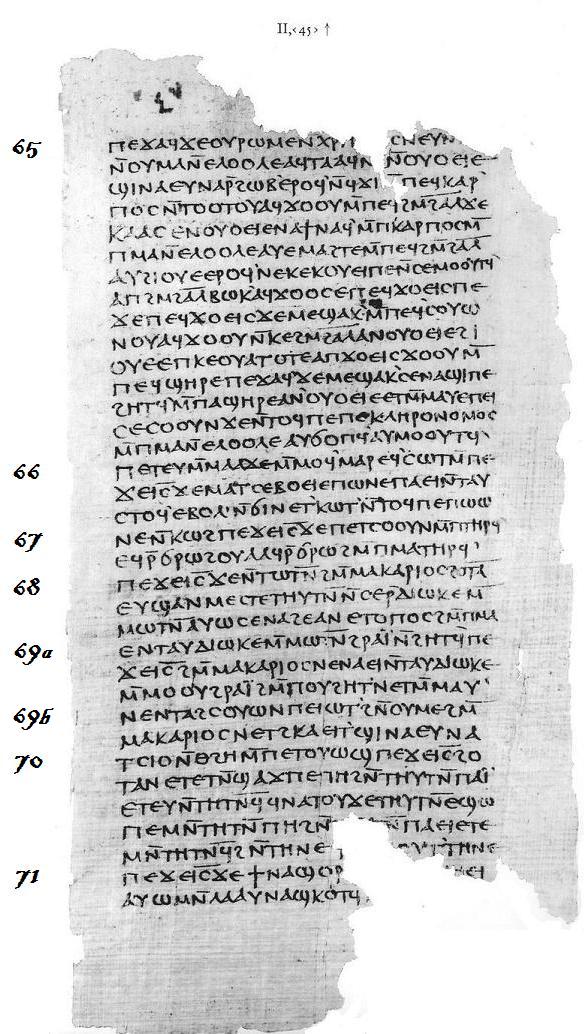 ⲡⲉϫⲁϥϫⲉⲟⲩⲣⲱⲙⲉⲛⲭⲣ ⲥⲛⲉⲩⲛ
ⲛ̄ⲟⲩⲙⲁⲛ̄ⲉⲗⲟⲟⲗⲉⲁϥⲧⲁⲁϥⲛ ⲛ̄ⲟⲩⲟⲉⲓⲉ
ϣⲓⲛⲁⲉⲩⲛⲁⲣ̄ϩⲱⲃⲉⲣⲟϥⲛ̄ϥϫⲓ ⲡⲉϥⲕⲁⲣ
ⲡⲟⲥⲛ̄ⲧⲟⲟⲧⲟⲩⲁϥϫⲟⲟⲩⲙ̄ⲡⲉϥϩⲙ̄ϩⲁⲗϫⲉ
ⲕⲁⲁⲥⲉⲛⲟⲩⲟⲉⲓⲉⲛⲁϯⲛⲁϥⲙ̄ⲡⲕⲁⲣⲡⲟⲥⲙ̄
ⲡⲙⲁⲛ̄ⲉⲗⲟⲟⲗⲉⲁⲩⲉⲙⲁϩⲧⲉⲙ̄ⲡⲉϥϩⲙ̄ϩⲁⲗ
ⲁⲩϩⲓⲟⲩⲉⲉⲣⲟϥⲛⲉⲕⲉⲕⲟⲩⲉⲓⲡⲉⲛ̄ⲥⲉⲙⲟⲟⲩⲧϥ
ⲁⲡϩⲙ̄ϩⲁⲗⲃⲱⲕⲁϥϫⲟⲟⲥⲉⲡⲉϥϫⲟⲉⲓⲥⲡⲉ
ϫⲉⲡⲉϥϫⲟⲉⲓⲥϫⲉⲙⲉϣⲁⲕⲙ̄ⲡⲉϥⲥⲟⲩⲱ
ⲛⲟⲩⲁϥϫⲟⲟⲩⲛ̄ⲕⲉϩⲙ̄ϩⲁⲗⲁⲛⲟⲩⲟⲉⲓⲉϩⲓ
ⲟⲩⲉⲉⲡⲕⲉⲟⲩⲁⲧⲟⲧⲉⲁⲡϫⲟⲉⲓⲥϫⲟⲟⲩⲙ̄
ⲡⲉϥϣⲏⲣⲉⲡⲉϫⲁϥϫⲉⲙⲉϣⲁⲕⲥⲉⲛⲁϣⲓⲡⲉ
ϩⲏⲧϥⲙ̄ⲡⲁϣⲏⲣⲉⲁⲛⲟⲩⲟⲉⲓⲉⲉⲧⲙ̄ⲙⲁⲩⲉⲡⲉⲓ
ⲥⲉⲥⲟⲟⲩⲛϫⲉⲛ̄ⲧⲟϥⲡⲉⲡⲉⲕⲗⲏⲣⲟⲛⲟⲙⲟⲥ
ⲙ̄ⲡⲙⲁⲛ̄ⲉⲗⲟⲟⲗⲉⲁⲩϭⲟⲡϥⲁⲩⲙⲟⲟⲩⲧϥ
ⲡⲉⲧⲉⲩⲙⲙⲁⲁϫⲉⲙ̄ⲙⲟϥⲙⲁⲣⲉϥⲥⲱⲧⲙ̄ⲡⲉ
ϫⲉⲓ̅ⲥ̅ϫⲉⲙⲁⲧⲥⲉⲃⲟⲉⲓⲉⲡⲱⲛⲉⲡⲁⲉⲓⲛ̄ⲧⲁⲩ
ⲥⲧⲟϥⲉⲃⲟⲗⲛ̄ϭⲓⲛⲉⲧⲕⲱⲧⲛ̄ⲧⲟϥⲡⲉⲡⲱⲱ
ⲛⲉⲛ̄ⲕⲱϩⲡⲉϫⲉⲓ̅ⲥ̅ϫⲉⲡⲉⲧⲥⲟⲟⲩⲛⲙ̄ⲡⲧⲏⲣϥ
ⲉϥⲣ̄ϭⲣⲱϩⲟⲩⲁⲁϥⲣ̄ϭⲣⲱϩⲙ̄ⲡⲙⲁⲧⲏⲣϥ
ⲡⲉϫⲉⲓ̅ⲥ̅ϫⲉⲛ̄ⲧⲱⲧⲛ̄ϩⲙ̄ⲙⲁⲕⲁⲣⲓⲟⲥϩⲟⲧⲁ
ⲉⲩϣⲁⲛⲙⲉⲥⲧⲉⲧⲏⲩⲧⲛ̄ⲛ̄ⲥⲉⲣ̄ⲇⲓⲱⲕⲉⲙ̄
ⲙⲱⲧⲛ̄ⲁⲩⲱⲥⲉⲛⲁϩⲉⲁⲛⲉⲧⲟⲡⲟⲥϩⲙ̄ⲡⲙⲁ
ⲉⲛⲧⲁⲩⲇⲓⲱⲕⲉⲙ̄ⲙⲱⲧⲛ̄ϩⲣⲁⲓ̈ⲛ̄ϩⲏⲧϥⲡⲉ
ϫⲉⲓ̅ⲥ̅ϩⲙ̄ⲙⲁⲕⲁⲣⲓⲟⲥⲛⲉⲛⲁⲉⲓⲛ̄ⲧⲁⲩⲇⲓⲱⲕⲉ
ⲙ̄ⲙⲟⲟⲩϩⲣⲁⲓ̈ϩⲙ̄ⲡⲟⲩϩⲏⲧⲛⲉⲧⲙ̄ⲙⲁⲩ
ⲛⲉⲛⲧⲁϩⲥⲟⲩⲱⲛⲡⲉⲓⲱⲧϩⲛ̄ⲟⲩⲙⲉϩⲙ̄
ⲙⲁⲕⲁⲣⲓⲟⲥⲛⲉⲧϩⲕⲁⲉⲓⲧϣⲓⲛⲁⲉⲩⲛⲁ
ⲧⲥⲓⲟⲛ̄ⲑϩⲏⲙ̄ⲡⲉⲧⲟⲩⲱϣⲡⲉϫⲉⲓ̅ⲥ̅ϩⲟ
ⲧⲁⲛⲉⲧⲉⲧⲛ̄ϣⲁϫⲡⲉⲡⲏϩⲛ̄ⲧⲏⲩⲧⲛ̄ⲡⲁⲓ̈
ⲉⲧⲉⲩⲛ̄ⲧⲏⲧⲛ̄ϥϥⲛⲁⲧⲟⲩϫⲉⲧⲏⲩⲧⲛ̄ⲉϣⲱ
ⲡⲉⲙⲛ̄ⲧⲏⲧⲛ̄ⲡⲏϩⲛ̄ ⲛ̄ⲡⲁⲉⲓⲉⲧⲉ
ⲙⲛ̄ⲧⲏⲧⲛ̄ϥϩⲛ̄ⲧⲏⲛⲉ ⲧⲏⲛⲉ
ⲡⲉϫⲉⲓ̅ⲥ̅ϫⲉϯⲛⲁϣⲟⲣ ⲉⲓ
ⲁⲩⲱⲙⲛ̄ⲗⲁⲁⲩⲛⲁϣⲕⲟⲧϥ
II,‹45› ↑
65
66
67
68
69a
69b
70
71